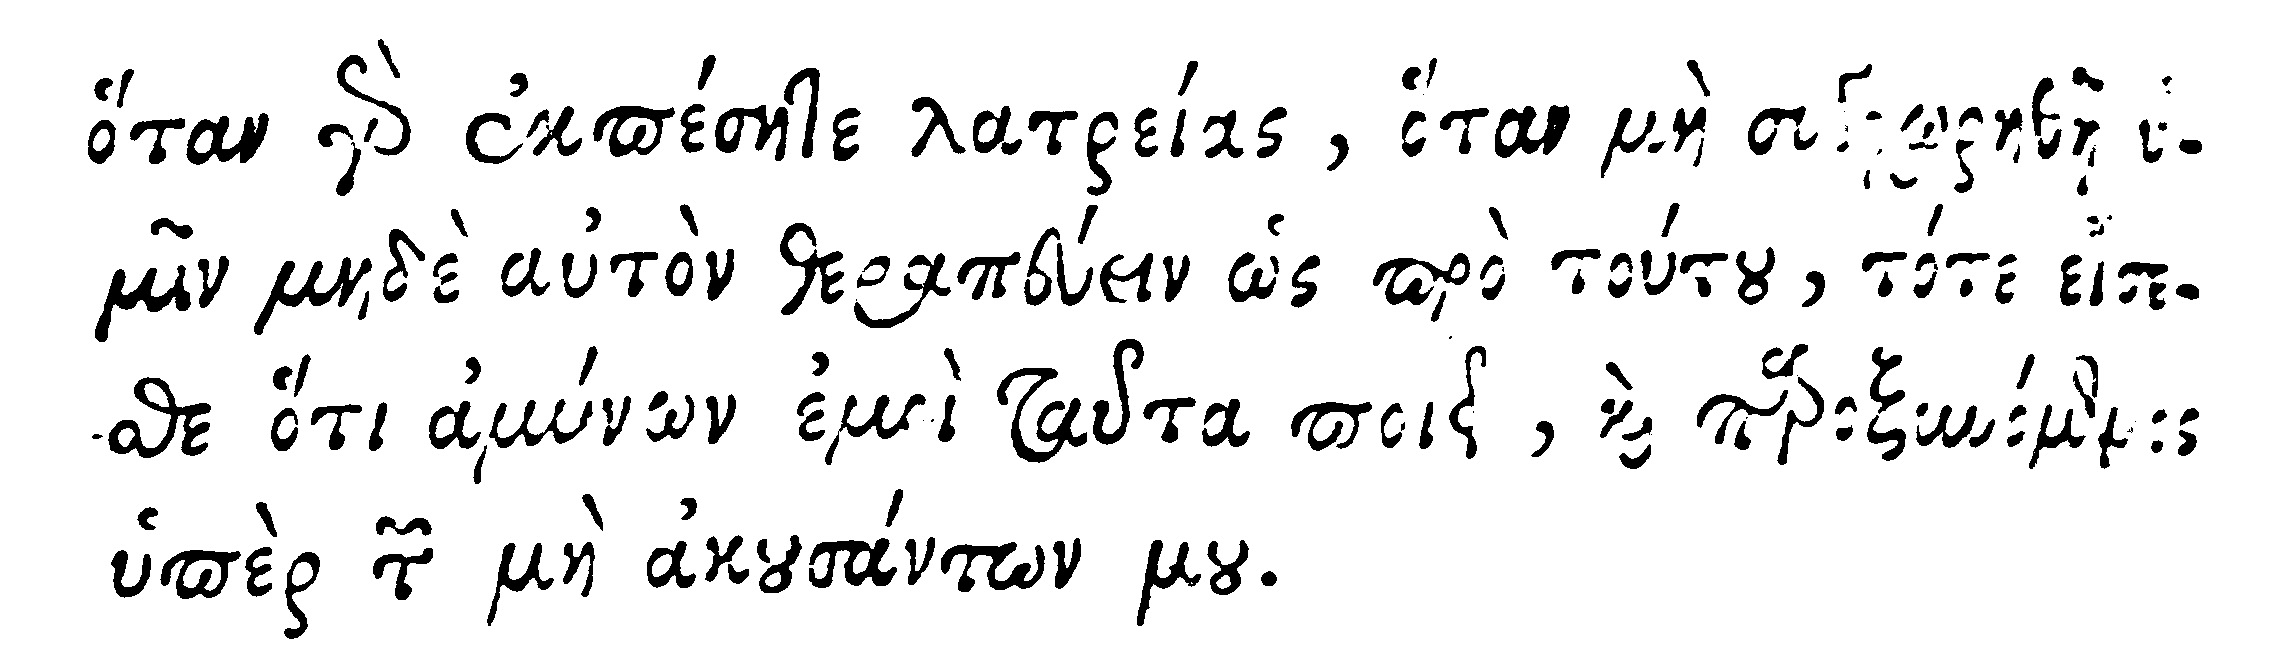 ὅταν γὰρ ἐκπέσητε λατρείας, ὅταν μὴ συγχωρηθῇ ὑ-
μῖν μηδὲ αὐτὸν θεραπεύειν ὡς πρὸ τούτου, τότε εἴσε-
σθε ὅτι ἀμύνων ἐμοὶ ταῦτα ποιεῖ, καὶ παροξυνόμενος
ὑπὲρ τῶν μὴ ἀκουσάντων μου.